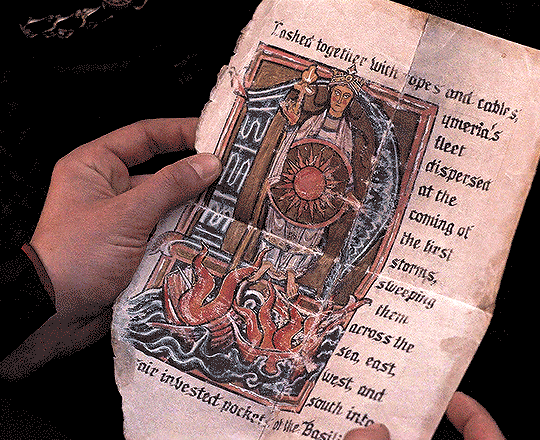 Lashed together with ropes and cables,
ymeria's
fleet
dispersed
at the
coming of
the first
storms,
sweeping
them
across the
sea, east,
west, and
south into
air invested pocket of the Basili